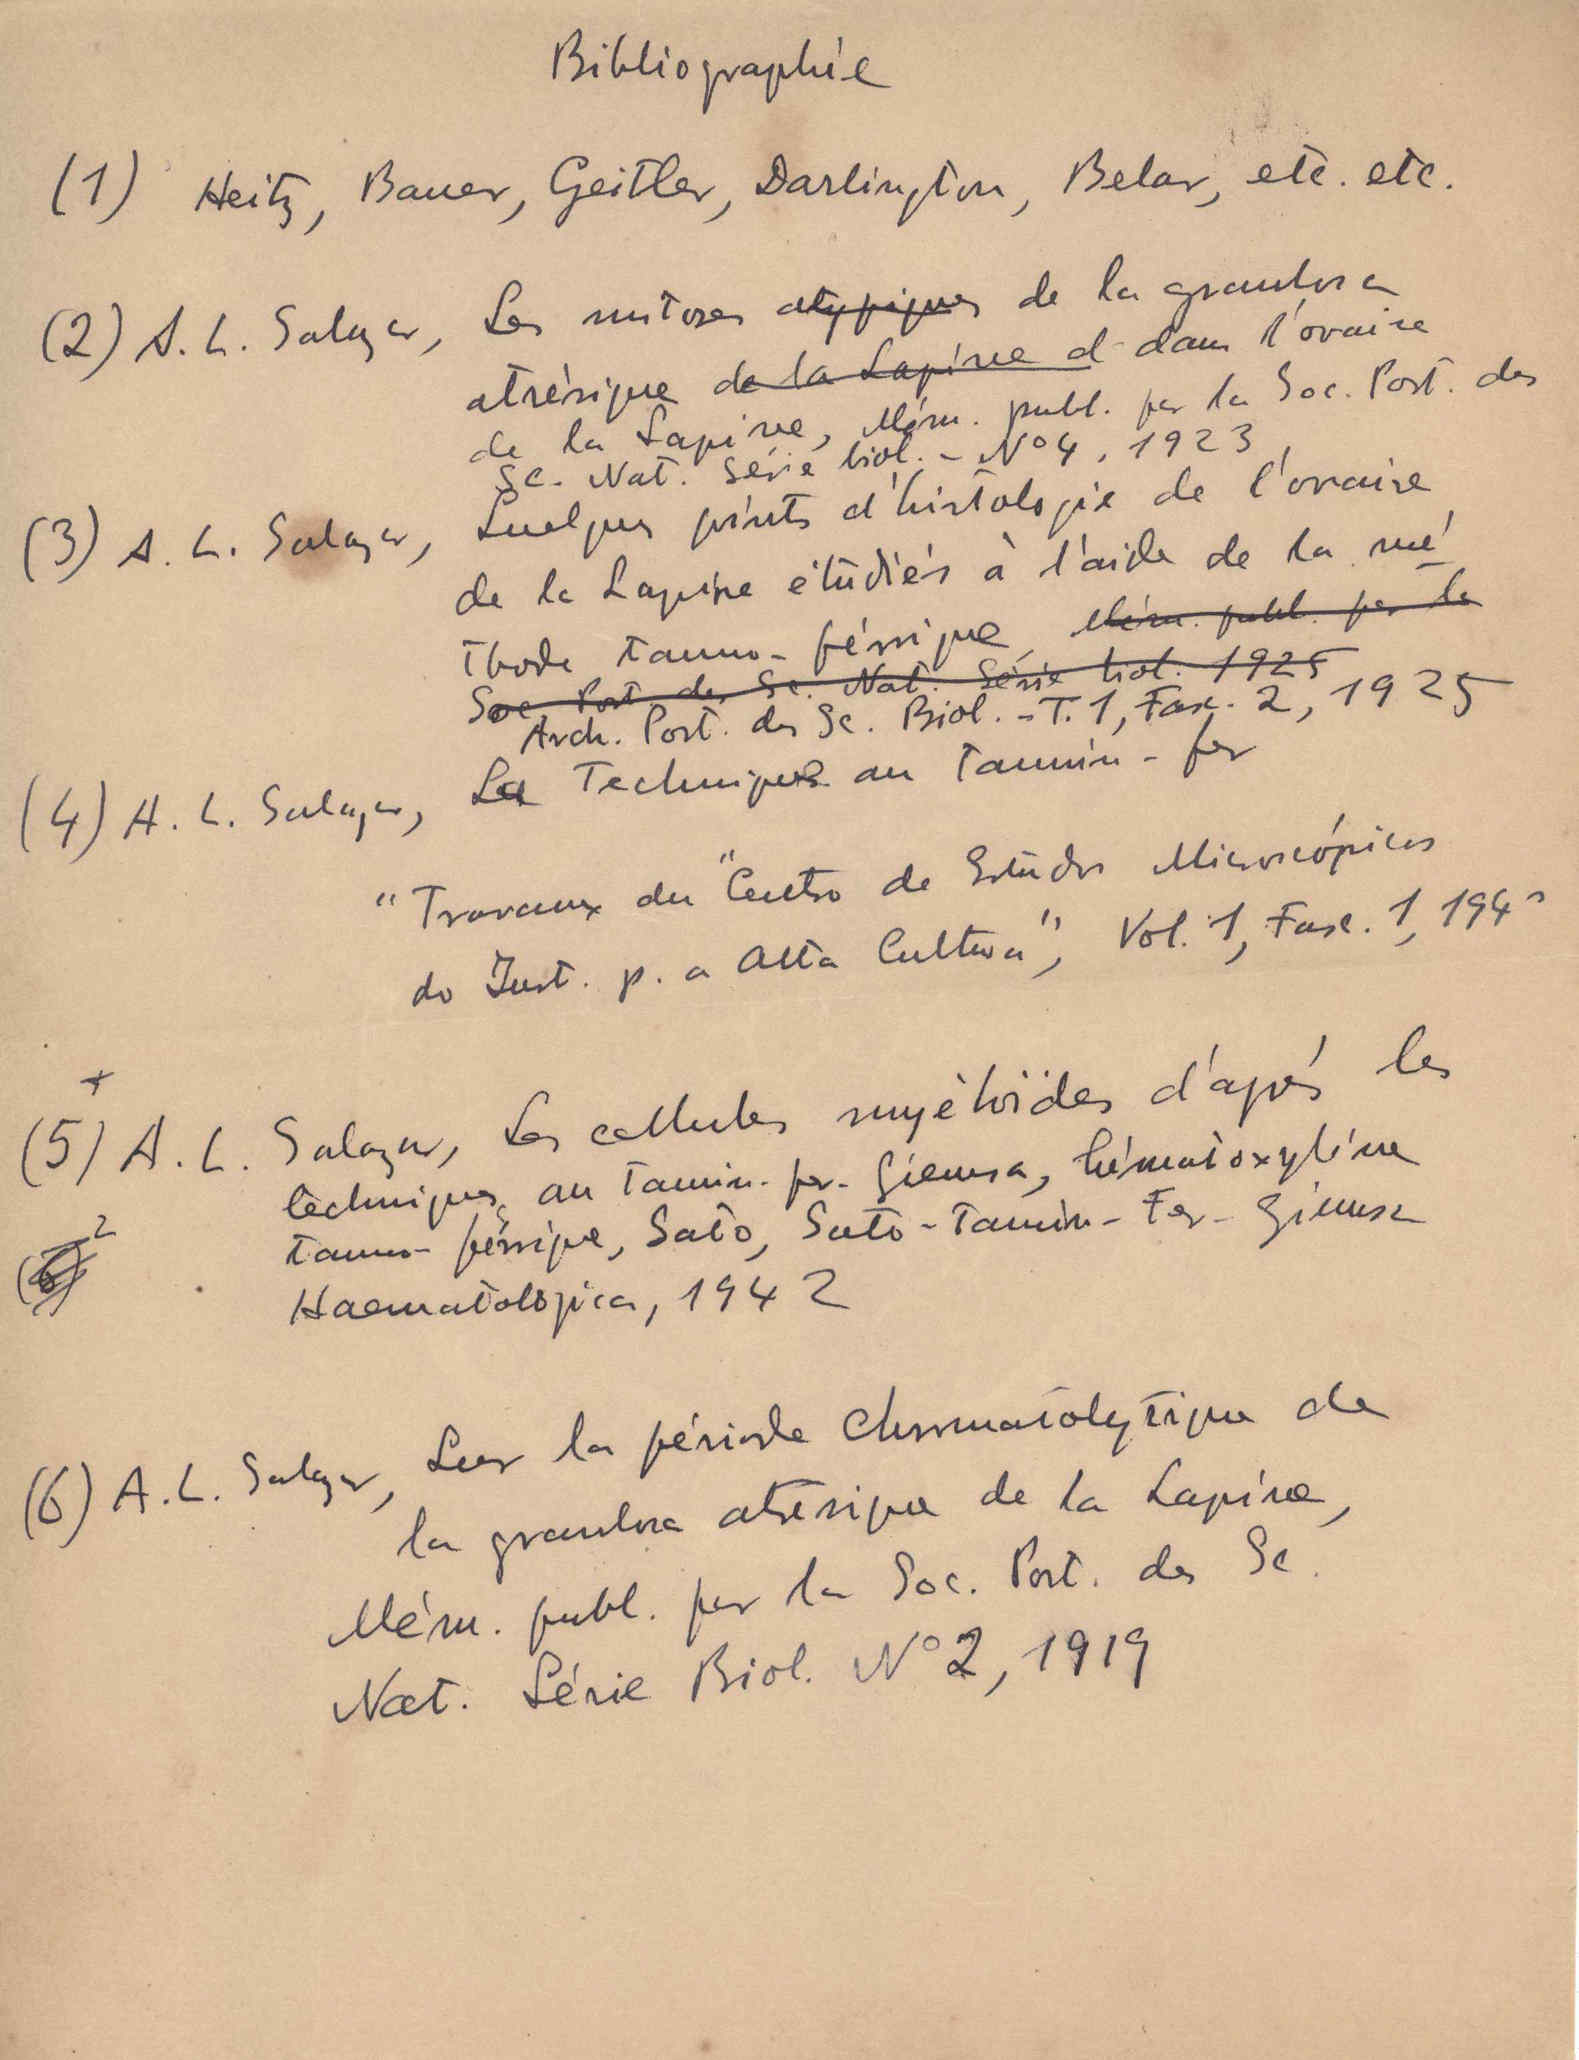 Bibliographie
(1) Heitz, Bauer, Geitler, Darlington, Belar, etc. etc.
(2) A. L. Salazar, Les mitoses atypiques de la granulosa
atrésique de la Lapine d dans l'ovaire
de la Lapine, Mém. publ. par la Soc. Port. des
Sc. Nat. Série biol. - Nº 4, 1923
(3) A. L. Salazar, Quelques points d'histologie de l'ovaire
de la Lapine étudiés à l'aide de la mé
thode tanno-férrique, Mém. publ. par la
Soc Port des Sc. Nat. Série biol. 1925
Arch. Port. des Sc. Biol. - T. 1, Fasc. 2, 1925
(4) A. L. Salazar, La Technique au Tannin-fer
"Travaux du "Centro de Estudos Microscópicos
do Inst. p. a Alta Cultura", Vol. 1, Fasc. 1, 194
(5) A. L. Salazar, Les cellules myéloïdes d'aprés les
techniques au Tannin-fer-Giemsa, hématoxyline
tanno-férrique, Sato, Sato-Tannin-Fer-Giemsa
Haematologica, 1942
(6) A. L. Salazar, Sur la période chromatolytique de
la granulosa atresique de la Lapine,
Mém. publ. par la Soc. Port. des Sc.
Nat. Série Biol. Nº 2, 1919